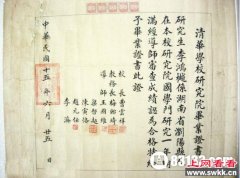 清華學校研究院畢業證書
研究生李鴻樾係湖南省瀏陽縣
在本校研究院國學門研究一年期
滿經導師審查成績認為合格特
予畢業證書此證
校長曹雲祥
導師王國維
梁啟超
陳寅恪
趙元任
李濟
中華民國十五年六月廿五日
上网看看
www.swkk.cn